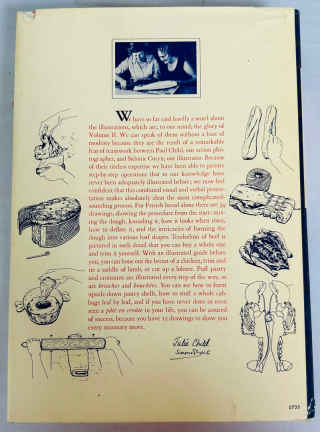 We have so far said hardly a word about
the illustrations, which are, to our mind, the glory of
Volume II. We can speak of them without a hint of
modesty because they are the result of a remarkable
feat of teamwork between Paul Child, our artist pho-
tographer, and Sidonie Coryn, our illustrator. Because
of their tireless expertise we have been able to picture
step-by-step operations that to our knowledge have
never been adequately illustrated before; we now feel
confident that this combined visual and verbal presen-
tation makes absolutely clear the most complicated-
sounding process. For French bread alone there are
drawings, showing the procedure from the start: mix-
ing the dough, kneading it, how it looks when risen,
how to deflate it, and the intricacies of forming the
dough into various loaf shapes. Tenderloin of beef is
pictured in such detail that you can buy a whole one
and trim it yourself. With an illustrated guide before
you, you can bone out the breast of a chicken, trim and
tie a saddle of lamb, or cut up a lobster. Puff pastry
and croissants are illustrated every step of the way, as
are brioches and bouchées. You can see how to form
upside-down pastry shells, how to stuff a whole cab-
bage leaf by leaf, and if you have never done or even
seen a pâté en croûte in your life, you can be assured
of success, because you have 12 drawings to show you
every necessary move.
Julia Child
Simone Beck
0795